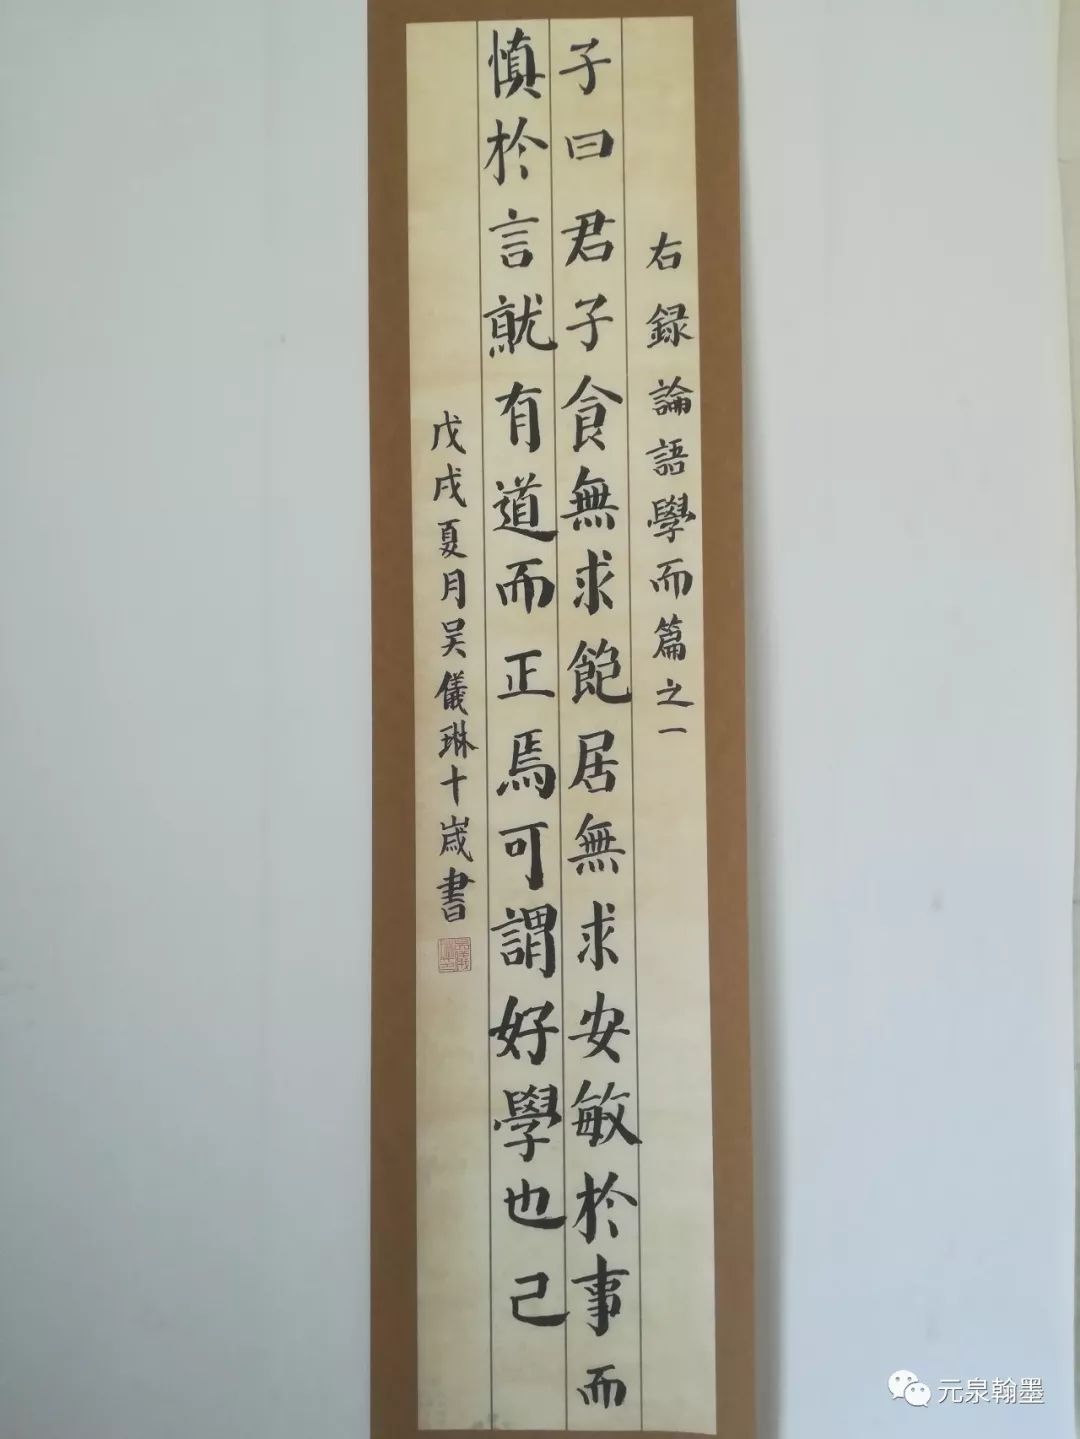 右録論語學而篇之一
子曰君子食無求飽居無求安敏於事而
慎於言就有道而正焉可謂好學也己
戊戌夏月吴儀琳十歲書
元泉翰墨